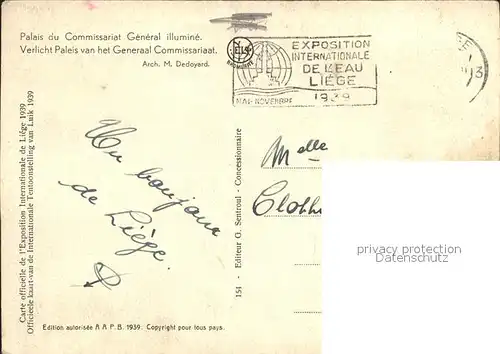 Palais du Commissariat Général illuminé.
Verlicht Paleis van het Generaal Commissariaat.
Arch. M. Dedoyard.
EXPOSITION
INTERNATIONALE
DE L'EAU
LIÉGE
1939
MAI-NOVEMBRE
Carte officielle de l'Exposition Internationale de Liége 1939
Officieele kaart van de Internationale Tentoonstelling van Luik 1939
Un bonjour
de Liége.
154 - Editeur O. Sentroul - Concessionnaire
Melle
privacy protection
ansichtskarten
Edition autorisée A A P. B. 1939. Copyright pour tous pays.